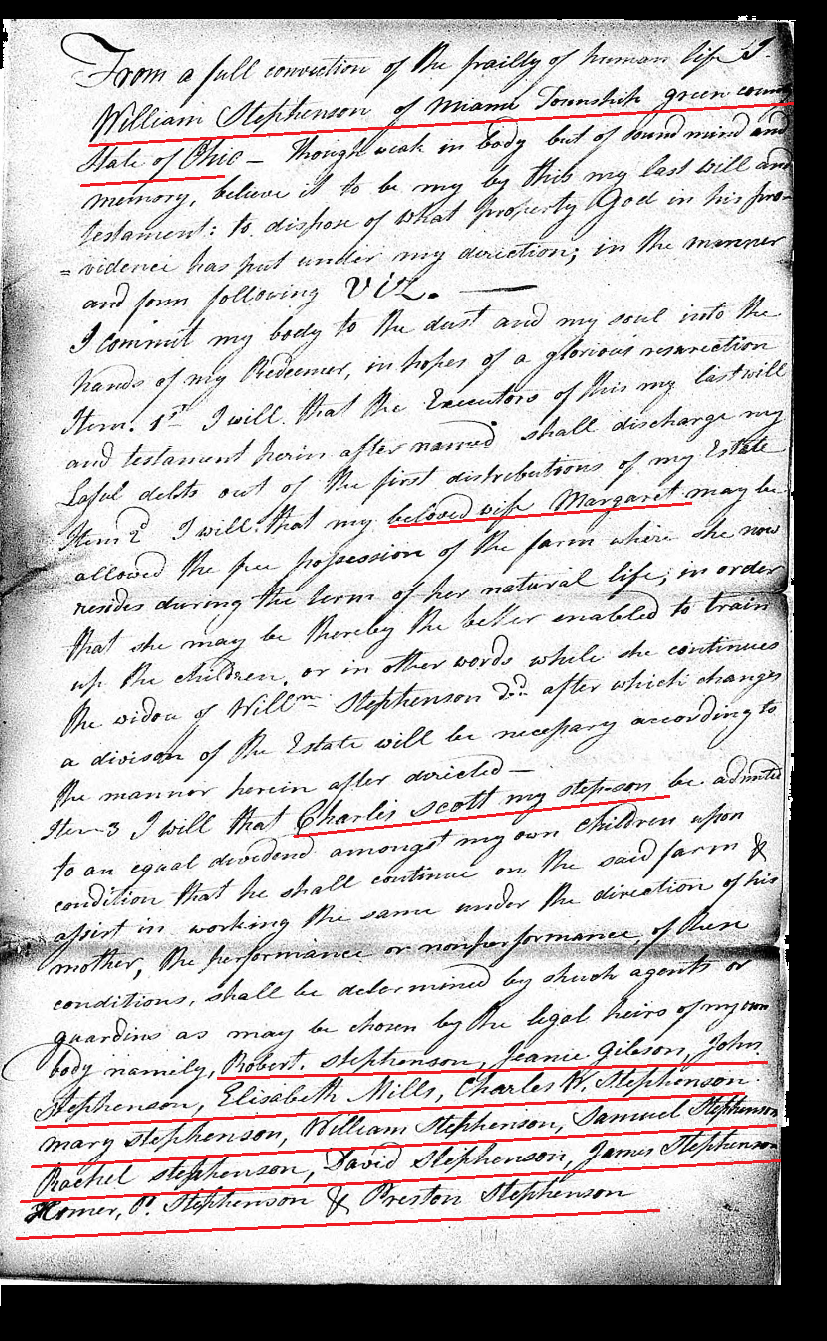 From a full conviction of the frailty of human life I.
William Stephenson of Miami Township green county
State of Ohio – though weak in body but of sound mind and
memory, believe it to be my by this my last will and
testament: to dispose of what property God in his pro-
=vidence has put under my direction; in the manner
and form following Viz. —
I commit my body to the dust and my soul into the
hands of my Redeemer, in hopes of a glorious resurrection
Item. 1st I will that the Executors of this my last will
and testament herin after named shall discharge my
Laful debts out of the first distributions of my Estate
Item 2d I will that my beloved wife Margaret may be
allowed the free possession of the farm where she now
resides during the term of her natural life; in order
that she may be thereby the better enabled to train
up the children, or in other words while she continues
the widow of Willm Stephenson Dd. after which changes
a divison of the Estate will be necessary according to
the mannor herein after directed –
Item 3 I will that Charles Scott my step-son be admited
to an equal dividend amongst my own children upon
condition that he shall continue on the said farm &
assist in working the same under the direction of his
mother, the performance or nonperformance, of these
conditions, shall be determined by shuch agents or
guardins as may be chosen by the legal heirs of my own
body namely, Robert. Stephenson, Jeanie Gibson, John
Stephenson, Elisabeth Mills, Charles W. Stephenson
mary stephenson, William Stephenson, Samuel Stephenson
Rachel stephenson, David Stephenson, James Stephenson
Homer, P. Stephenson & Preston Stephenson